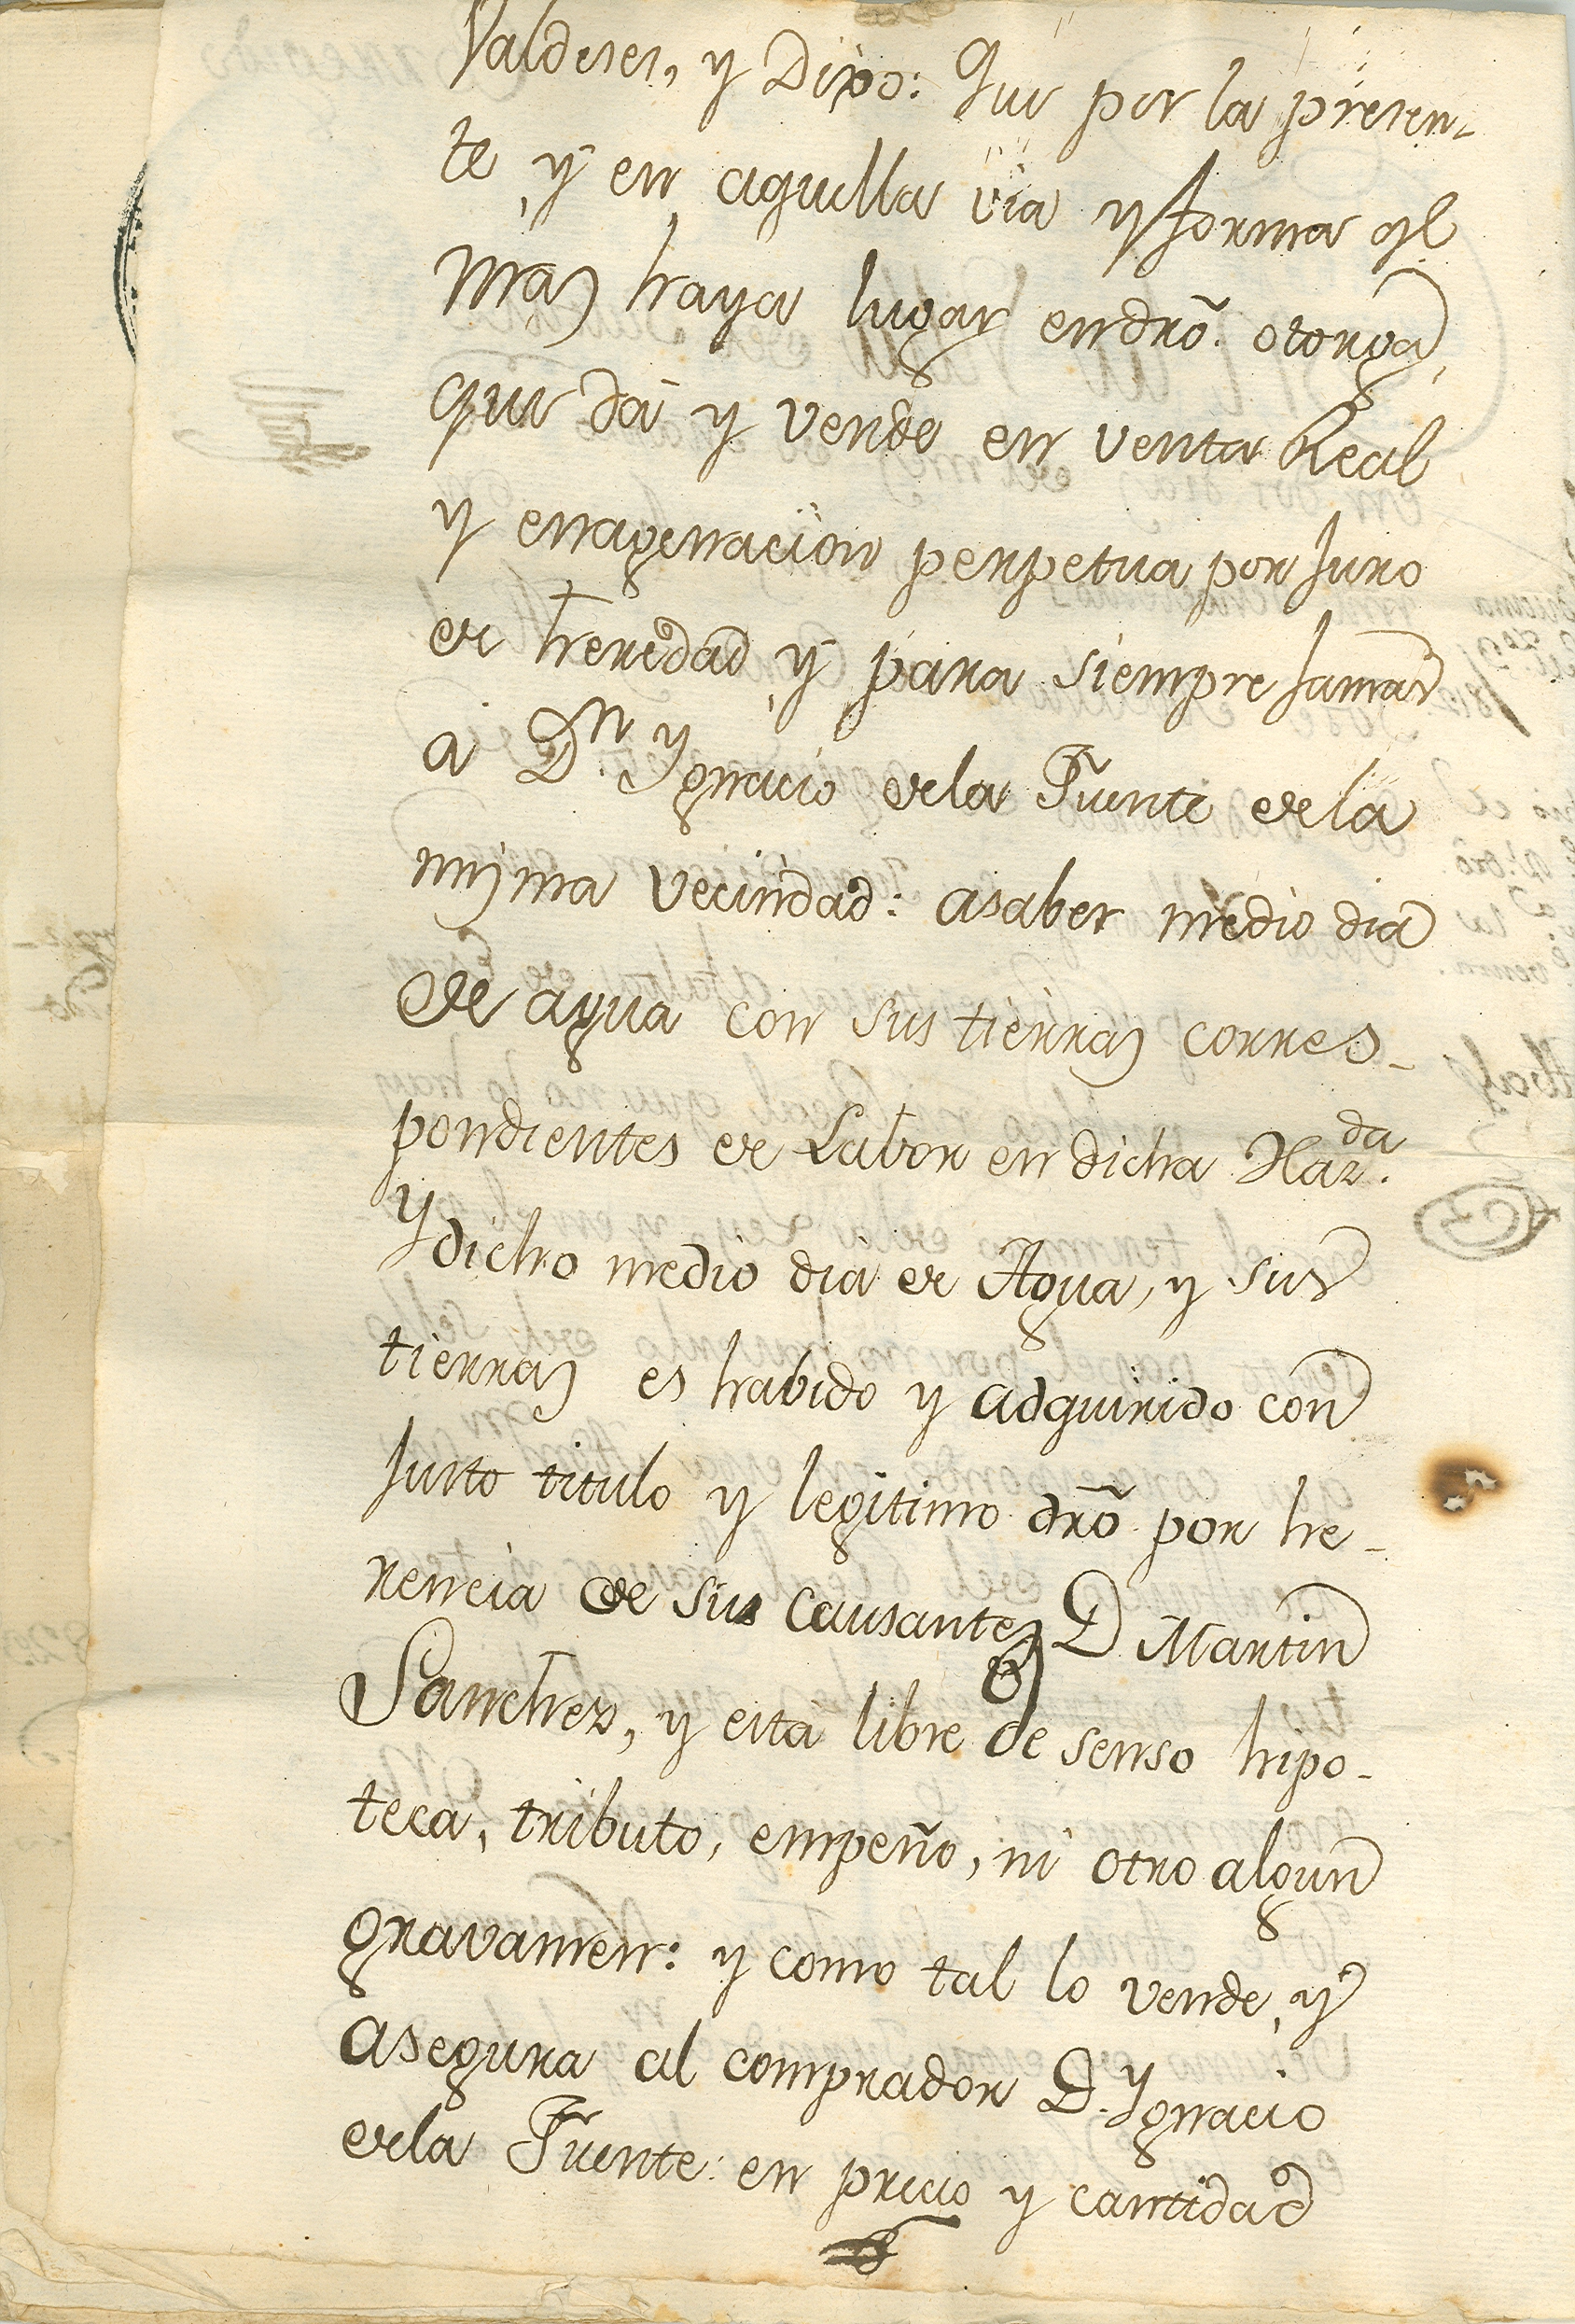 Valdeses, y Dixo: Que por la presen-
te, y en aquella via y forma qe
mas haya lugar en dro͂. otorga,
que dá y vende en venta Real
y enagenacion perpetua por Juro
de heredad, y para siempre Jamas
a Dn. Ygnacio de la Fuente de la
misma vecindad: asaber medio dia
de agua con sus tierras corres-
pondientes de Labor en dicha Hazda.
Y dicho medio dia de Agua, y sus
tierras es habido y adquirido con
Justo titulo y legitimo dro͂ por he-
rencia de sus causantes D Martin
Sanchez, y está libre de senso hipo-
teca, tributo, empeño, ni otro algun
gravamen: y como tal lo vende, y
asegura al comprador D. Ygnacio
de la Fuente: en precio y cantidad